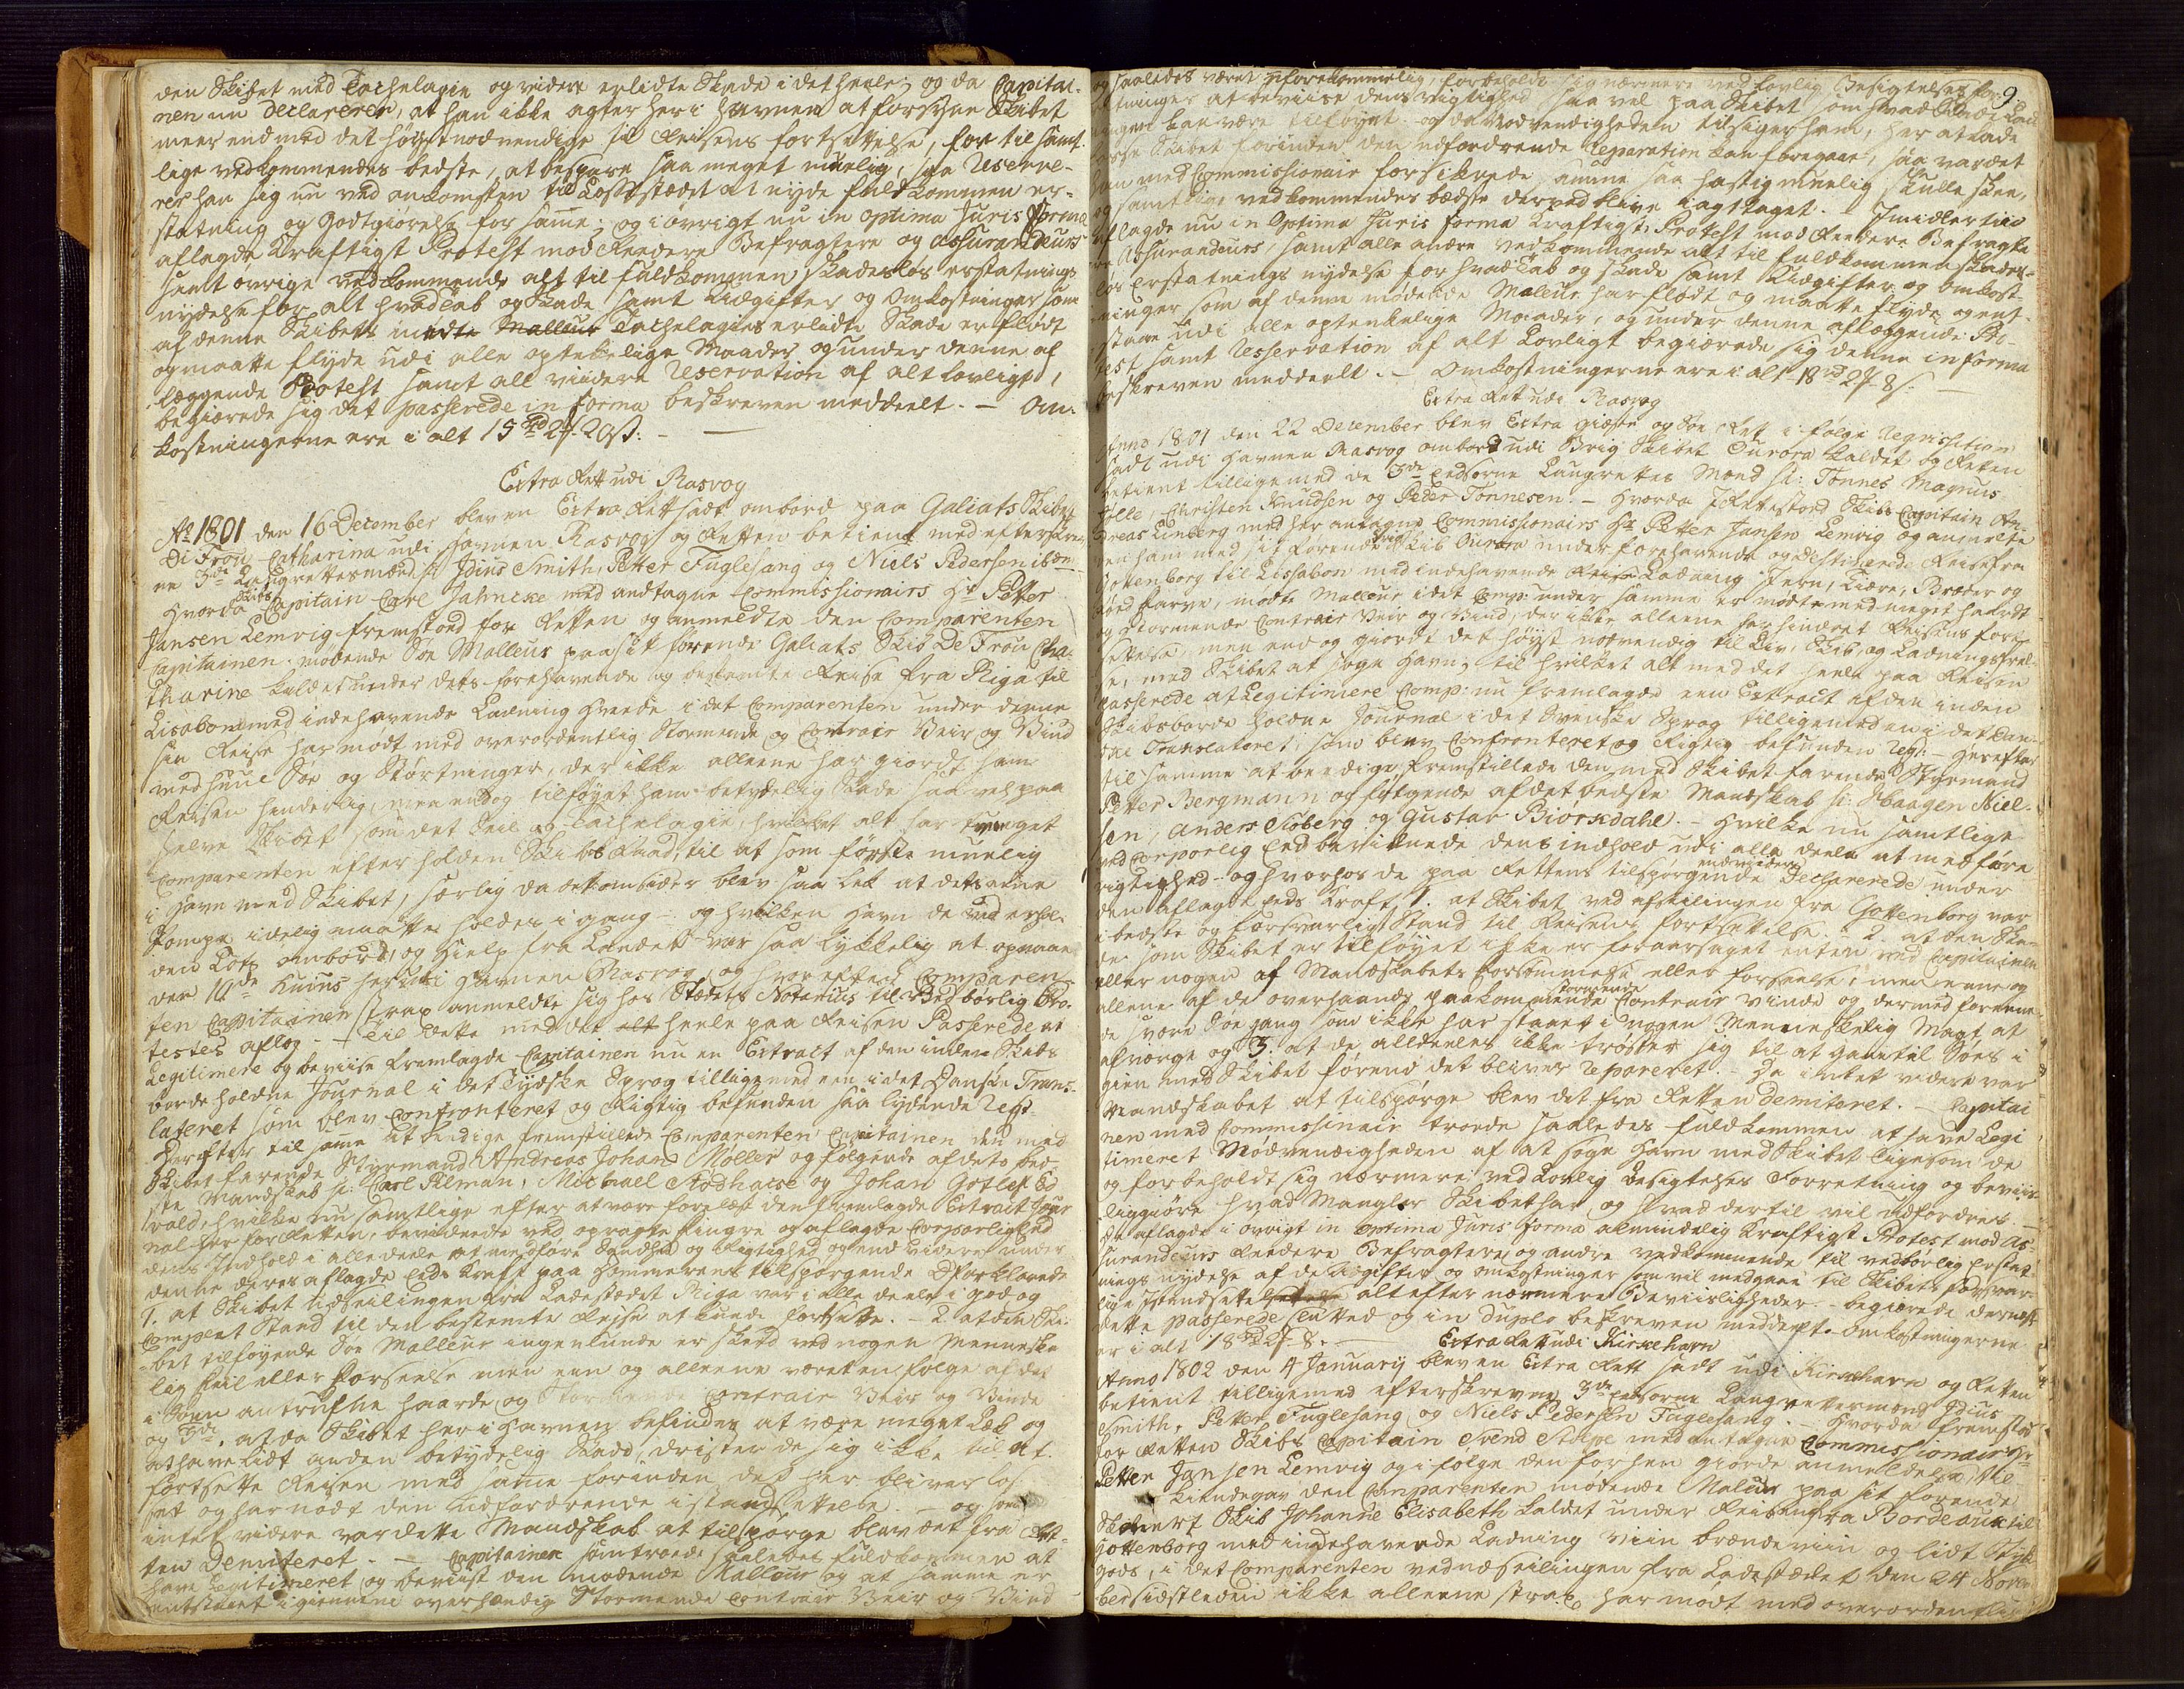 den Skibet med Tachelagie og videre erlidte Skade i det heele; og da Capitai-
nen nu Declarerer, at han ikke agter her i Havnen at forsyne Skibet
meer end med det høystnødvendige til Reisens fortsettelse, for til samt-
lige vedkommendes bedste, at bespare saa meget muelig, saa Reserve-
rer han sig nu ved ankomsten til Lossestædet at nyde fuldkommen er-
statning og Godtgiørelse for samme; og i øvrigt nu in optima Juris forma
aflagde kraftigst Protest mod Reedere Befragtere og Assurandeurs
samt øvrige vedkommende alt til fuldkommen skadesløs erstatnings
nydelse for alt hvad Tab og Skade samt Udgifter og Omkostninger som
af denne Skibets mødte Malleur Tachelagies erlidte Skade er flødt
og maatte flyde udi alle optenkelige Maader og under denne af-
læggende Protest samt all videre Reservation af alt lovligt,
begiærede sig det passerede in forma beskreven meddeelt. — Om-
kostningerne ere i alt 15 rd 2 f 20 s: —
Extra Rett udi Rasvog
Ao 1801 den 16 December blev en Extra Rett sadt ombord paa Galiats Skibet
Di Frou Catharina udi Havnen Rasvog og Retten betient med efterskrev-
ne 3de Laugrettesmænd sc: Idius Smith, Petter Fuglesang og Niels Pedersen ibm
Hvorda Skibs Capitain Carl Jahncke med andtagne Commissionairs Hr Petter
Jansen Lemvig fremstoed for Retten og anmeldte den Comparenten
Capitainen mødende Søe Malleur paa sit førende Galiats Skib De Frou Cha-
tharina kaldet under dets forehavende og bestemte Reise fra Riga til
Lisabon med indehavende Ladning Hveede i det Comparenten under denne
sin Reise har mødt med overordentlig Stormende og Contrair Veir og Vind
med huul Søe og Støttninger, der ikke alleene har giordt ham
Reisen hinderlig, men endog tilføyet ham betydelig Skade saa vel paa
selve Skibet som det Seil og Tachelagie, hvilket alt har tvunget
Comparenten efter holden Skibs Raad, til at som første muelig
i Havn med Skibet, særlig da det omsider blev saa Lek at dets ene
Pompe idelig maatte holdes i gang — og hvilken Havn de ved erhol-
den Lots ombord, og Hielp fra Landet var saa lykkelig at opnaae
den 10de huius her udi Havnen Rasvog, og hvorefter Comparen-
ten Capitainen strax anmeldte sig hos Stædets Notarius til Vedbørlig Pro-
testes aflæg. — Til dette med det alt heele paa Reisen Passerede at
Legitimere og beviise fremlagde Capitainen nu en Extract af den inden Skibs
borde holdne Journal i det Tydske Sprog tilligemed een i det Danske Trans-
lateret som blev Confronteret og Rigtig befunden saa lydende Regt.
Herefter til same at beedige fremstillede Comparenten Capitainen den med
Skibet farende Styrmand Andreas Johan Møller og følgende af dets bed-
ste Mandskab sc: Carl Pilman, Michael Aodhacse og Johan Gotlef Ed
vald, hvilke nu samtlige efter at være forelæst den fremlagde Extract Jour-
nal her for Retten, bevidnede ved opragte Fingre og aflagde Corporlig Eed
dens Indhold i alle deele at medføre Sandhed og Rigtighed og end videre under
denne deres aflagde Eeds Kraft paa Dommerens tilspørgende Forklarede
1. at Skibet udseilingen fra Ladestædet Riga var i alle deele i god og
Compleat Stand til den bestemte Reise at kunde fortsette. — 2. at den Ski-
bet tilføyende Søe Malleur ingenlunde er skeed ved nogen Menneske-
lig feil eller Forseelse men een og alleene været en følge af det
i Søen antrufne haarde og Stormende Contrair Veir og Vinde
og 3di. at da Skibet her i Havnen befindes at være meget Læk og
at have lidt anden betydelig Skade, drister de sig ikke til at
fortsette Reisen med same forinden det her bliver los-
set og har nødt den udfordrende istandsettelse — og som
intet videre var dette Mandskab at tilspørge blev det fra Ret-
ten Demiteret. — Capitainen som troede saaledes fuldkommen at
have Legitimeret og beviist den mødende Malleur og at samme er
entstaaet igiennem overhændig Stormende Contrair Veir og Vind
9.
og saaledes været uforekommelig, forbeholdt sig nærmere ved lovlig Besigtelses for-
retninger at beviise dens vigtighed saa vel paa Skibet som hvad Skade Lad-
ningen kan være tilføyet og da Nødvendigheden tilsiger ham, her at lade
losse Skibet forinden den udfordrende Reparation kan foregaae, saa var det
han med Commissionair forsikrede samme saa hastig muelig skulle skee,
og samtlige vedkommendes bedste derved blive iagttaget. — Imidlertid
aflagde nu in Optima Juris forma kraftigst Protest mod Reedere Befragte-
re Assurandeurs samt alle andre vedkommende alt til fuldkommen skades-
løs Erstatnings nydelse for hvad Tab og Skade samt Udgifter og Omkost-
ninger som af denne mødende Malleur har flødt og maatte flyde og ent-
staae udi alle optenkelige Maader, og under denne aflæggende Pro-
test samt Reservation af alt Lovligt begiærede sig denne in forma
beskreven meddeelt. — Omkostningerne ere i alt 18 rd 2 f 8 s: —
Extra Rett udi Rasvog
Anno 1801 den 22 December blev Extra giæste og Søe Ret i følge Reqvisition
sadt udi Havnen Rasvog ombord udi Brig Skibet Aurora kaldet og Retten
betient tilligemed de 3de Eedsorne Laugrettes Mænd sc: Tønnes Magnus
Tølle, Christen Knudsen og Peder Tønnesen. — Hvorda I Rettestoed Skibs Capitain An-
dreas Linberg med her antagne Commissionairs Hr Petter Jansen Lemvig og anmeldte
den ham med sit førende Brig Skib Aurora under forehavende og destinerede Reise fra
Gottenborg til Lissabon med indehavende Reise Ladning Jern, Tiære, Bræder og
Rød Farve, mødte Malleur i det Comp: under samme er mødt med meget haardt
og Stormende Contrair Veir og Vind, der ikke alleene forhindret Reisens fort-
settelse, men end og giordt det høyst nødvendig til Liv, Skib, og Ladnings frel-
se, med Skibet at søge Havn, til hvilket alt med det heele paa Reisen
passerede at Legitimere Comp: nu fremlagde een Extract af den inden
Skibsborde holdne Journal i det Svenske Sprog tilligemed en i det Dan-
ske Translateret, som blev Confronteret og Rigtig befunden Reg: — Herefter
til samme at beedige fremstillede den med Skibet farende Styrmand
Petter Bergmann og følgende af det bedste Mandskab sc: Haagen Niel-
sen, Anders Sioberg og Gustav Biørkdahl. — Hvilke nu samtlige
ved Corporlig Eed bevidnede dens indhold udi alle deele at medføre
rigtighed — og hvorhos de paa Rettens tilspørgende endvidere Declarerede under
den aflagde Eeds Kraft, 1. at Skibet ved afseilingen fra Gottenborg var
i bedste og forsvarlig Stand til Reisens fortsettelse. 2. at den Ska-
de som Skibet er tilføyet ikke er foraarsaget enten ved Capitainen
eller nogen af Mandskabets forsømmelse eller forseelse, men eene og
allene af de overhaands paakommende stormende Contrair Vinde og dermed forene-
de svære Søegang som ikke har staaet i nogen Menneskelig Magt, at
afværge og 3. at de alldeeles ikke trøster sig til at gaae til Søes i
gien med Skibet førend det bliver Repareret. — Da intet videre var
Mandskabet at tilspørge blev det fra Retten demiteret. — Capitai-
nen med Commissionair troede saaledes fuldkommen at have Legi-
timeret Nødvendigheden af at søge Havn med Skibet ligesom de
og forbeholdt sig nærmere ved Lovlig Besigtelses Forretning og beviis-
liggiøre hvad Mangler Skibet har, og hvad dertil vil udfordres. —
De aflagde i øvrigt in optima Juris forma almindelig kraftigst Protest mod As-
surandeurs Reedere Befragtere og andre vedkommende til vedbørlig Erstat-
nings nydelse af de Udgifter og omkostninger som vil medgaae til Skibets forsvar-
lige Istandsettelse alt efter nærmere Beviisligheder — begiærede dernæst
dette passerede sluttet og in duplo beskreven meddeelt. Omkostningerne
er i alt 18 rd 2 f 8. —
Extra Rett udi Kirkehavn
Anno 1802 den 4 January blev en Extra Rett sadt udi Kirkehavn og Retten
betient tilligemed efterskrevne 3de Eedsorne Laugrettesmænd Idius
Smith, Petter Fuglesang og Niels Pedersen Fuglesang. — Hvorda fremstod
for Retten Skibs Capitain Svend Stape med antagne Commissionair Hr
Petter Jansen Lemvig og i følge den forhen giorde anmeldelse til
Kiendegav den Comparenten mødende Malleur paa sit førende
Skonnert Skib Johanne Elisabeth kaldet under Reisen fra Bordeaux til
Gottenborg med indehavende Ladning Viin brændeviin og lidt Styk
gods, i det Comparenten ved udseilingen fra Ladestædet den 24 Novem-
ber sidstleden ikke alleene strax har mødt med overordentlig